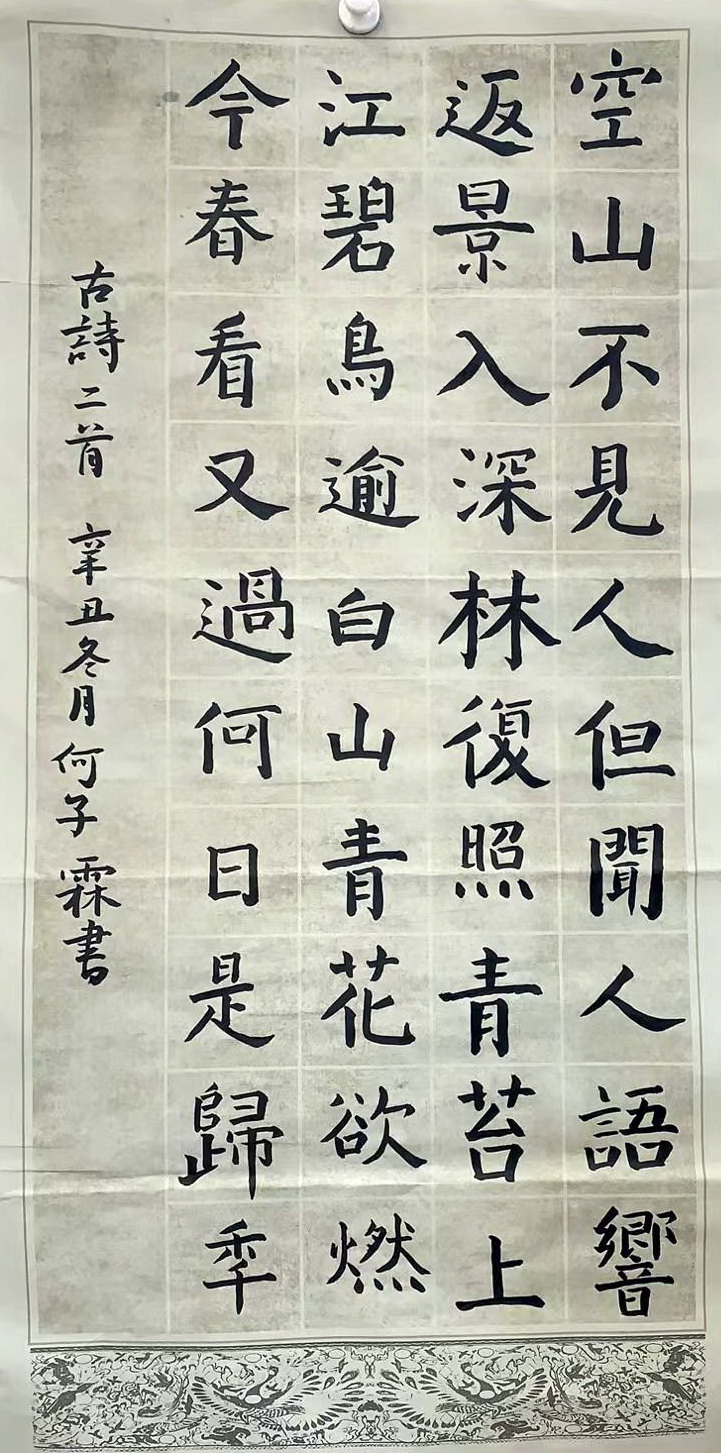 空山不見人但聞人語響
返景入深林復照青苔上
江碧鳥逾白山青花欲燃
今春看又過何日是歸季
古詩二首 辛丑冬月何子霖書